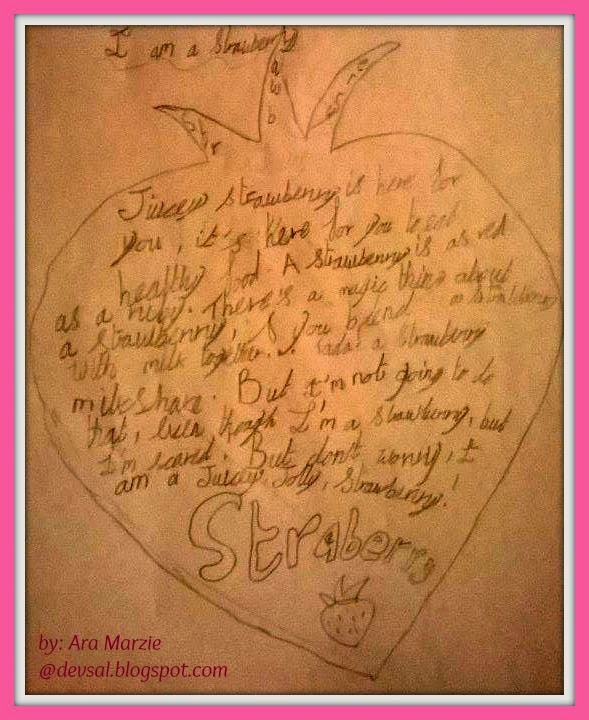 I am a Strawberry
Str
awb
erry
Juicey strawberry is here for
you, it's here for you to eat
healthy food. A strawberry is as red
as a ruby. There's a magic thing about
a strawberry, if you blend a strawberry
with milk together.. a strawberry
milkshake. But I'm not going to do
that, even though I'm a strawberry, but
I'm scared. But don't worry, I
am a Juicey, Jolly, Strawberry!
Straberry
by: Ara Marzie
@devsal.blogspot.com